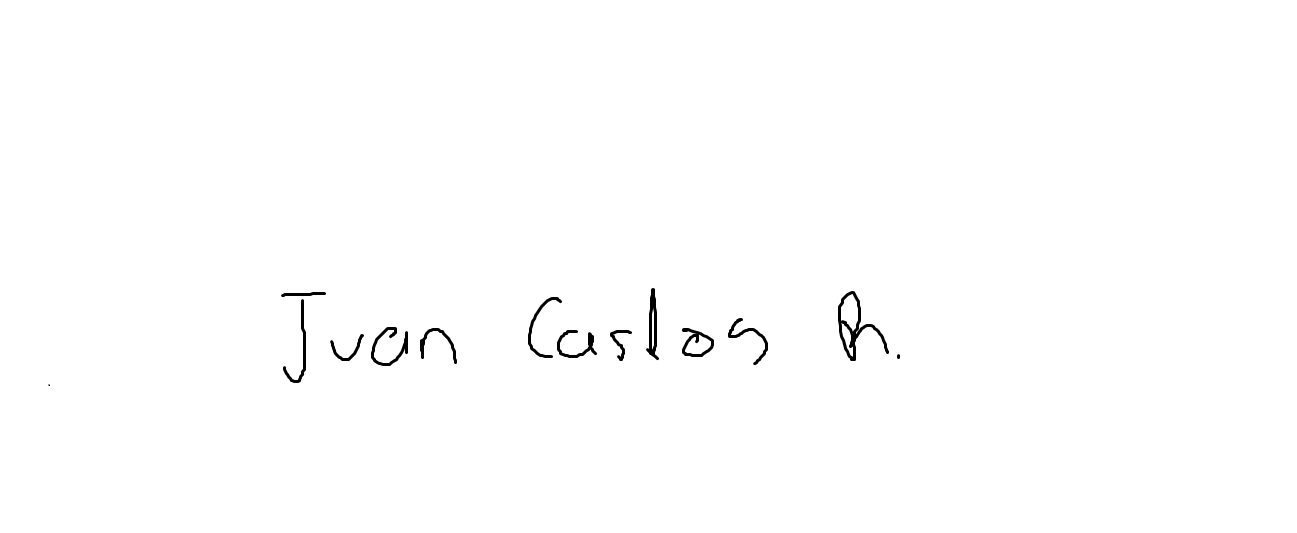 Juan Carlos R.